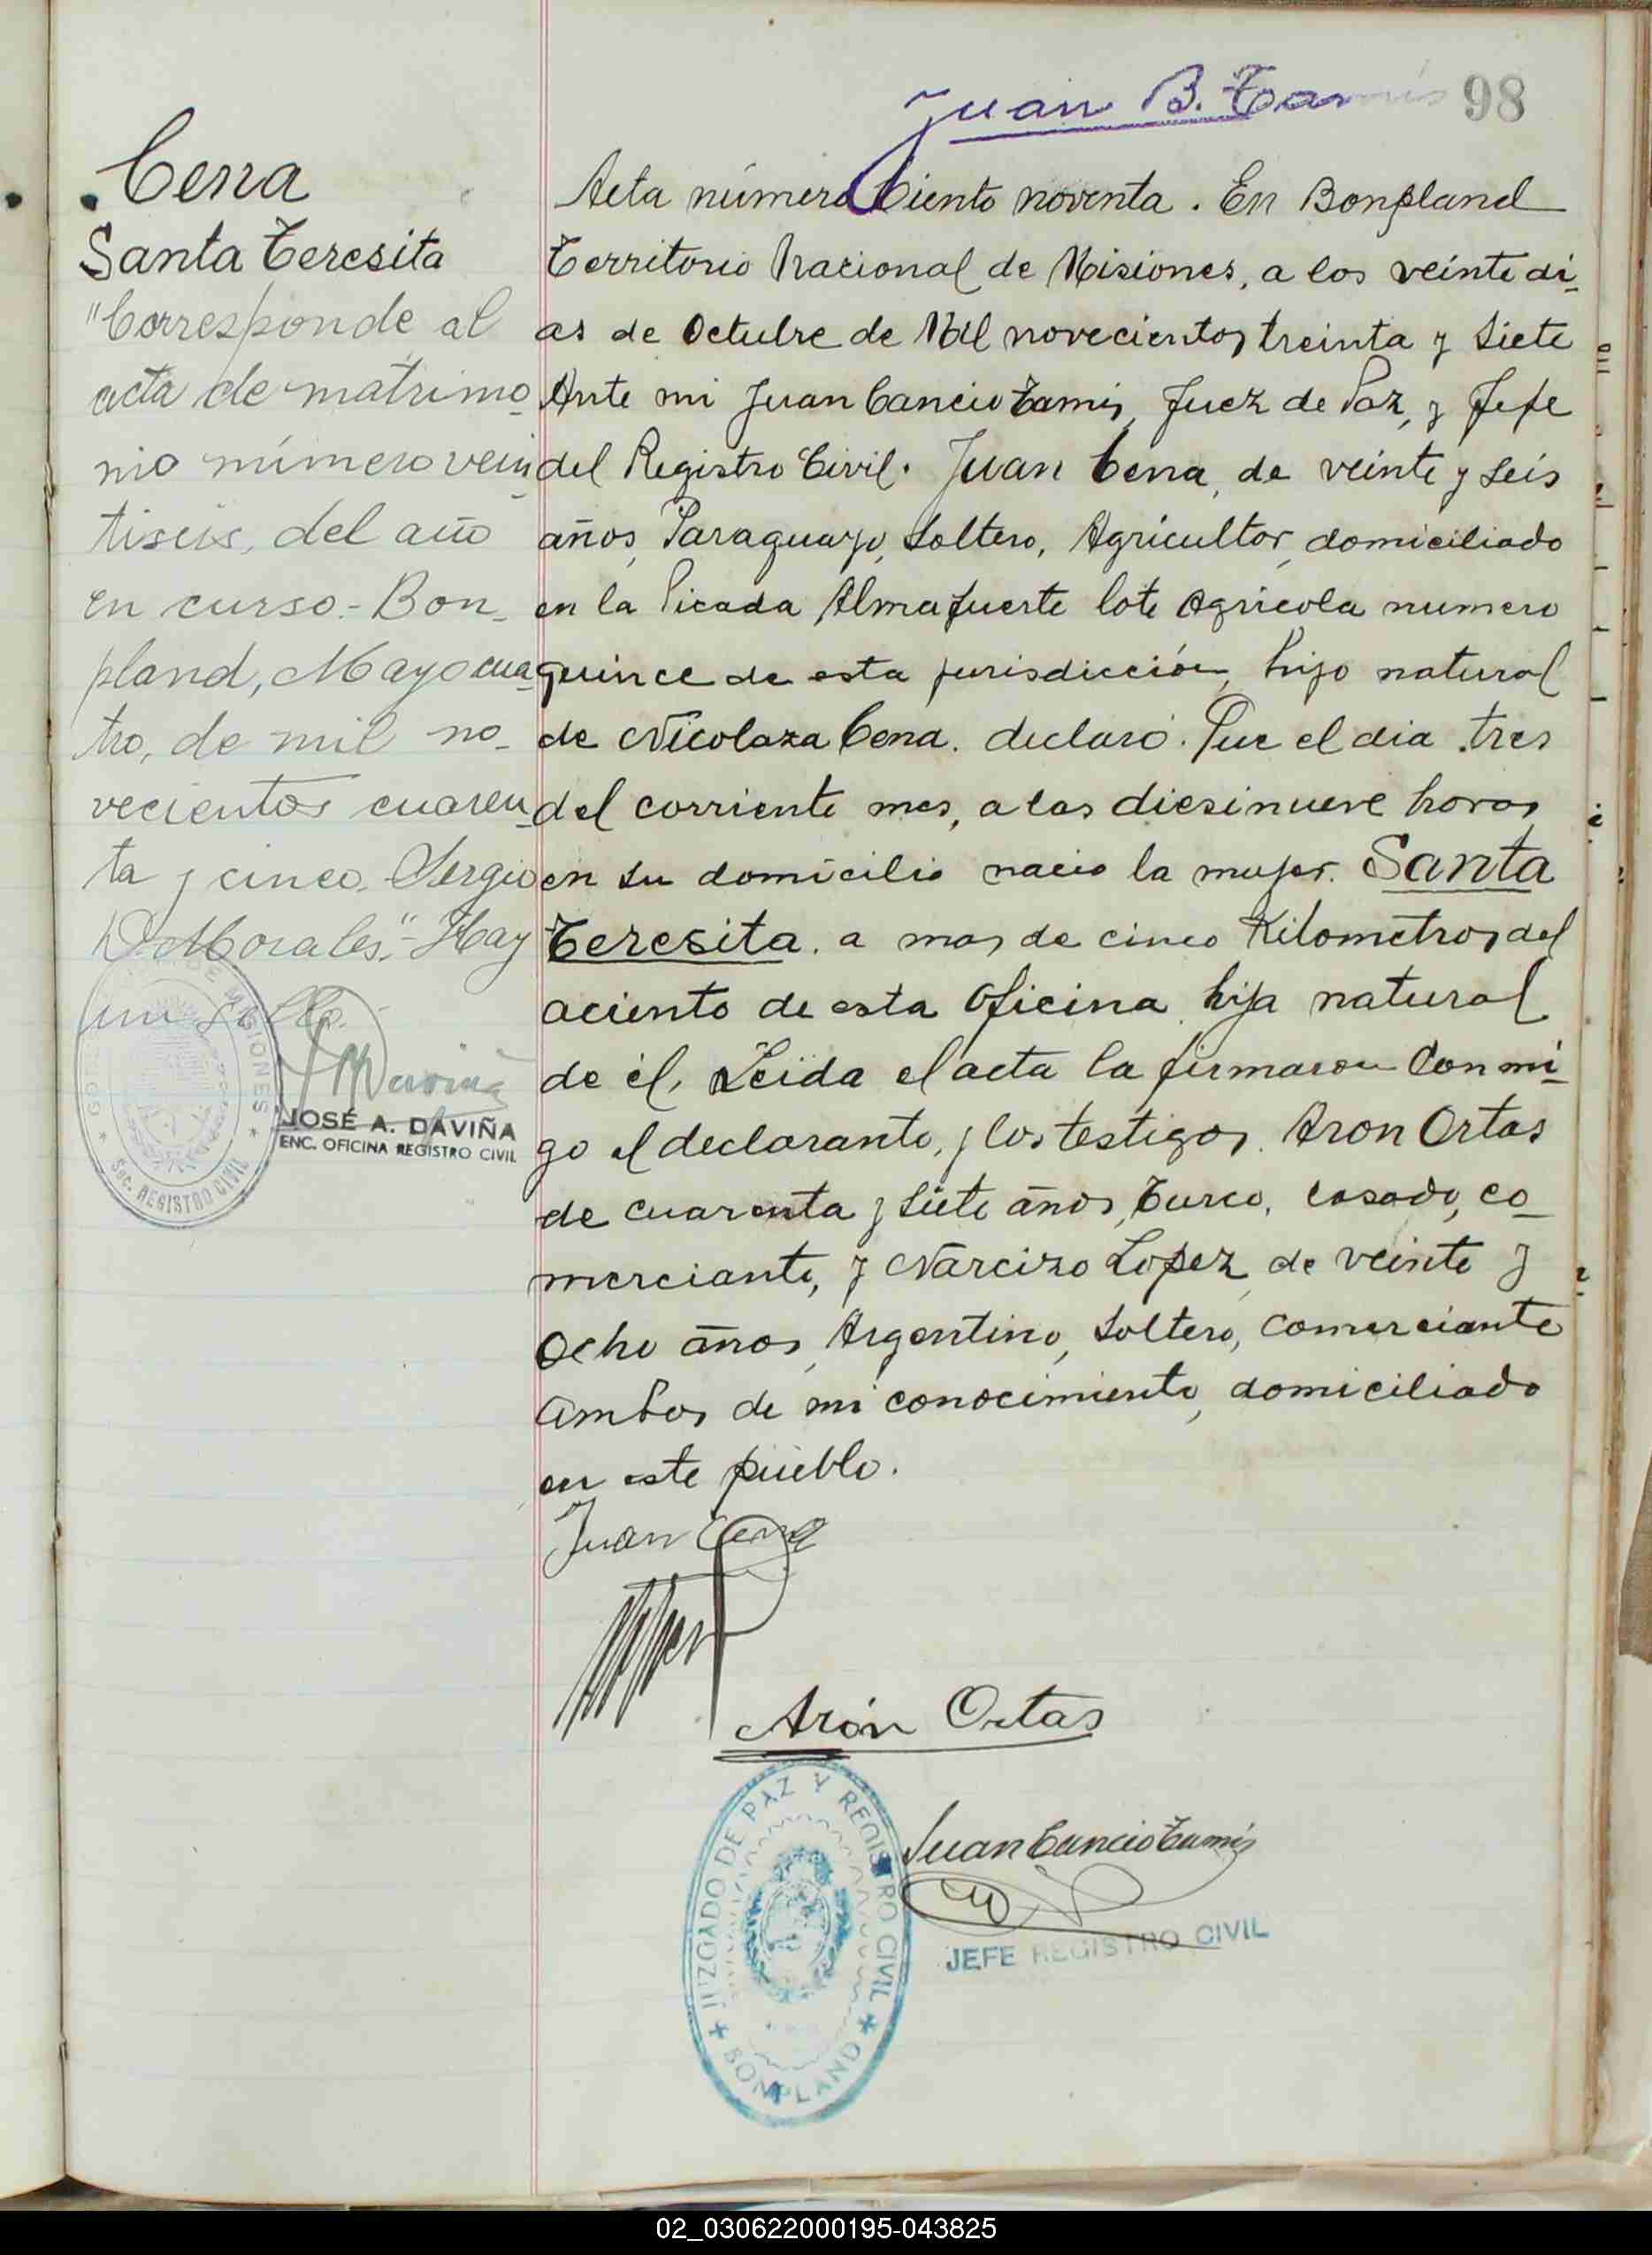 Juan B. Tamis 98
Cena
Santa Teresita
"Corresponde al
acta de matrimo-
nio número vein-
tiseis, del año
en curso.- Bon-
pland, Mayo cua-
tro, de mil no-
vecientos cuaren-
ta y cinco. Sergio
D. Morales."- Hay
un sello.-
JOSÉ A. DAVIÑA
ENC. OFICINA REGISTRO CIVIL
DE MISIONES
Sec. REGISTRO CIVIL
Acta número Ciento noventa. En Bonpland
Territorio Nacional de Misiones, a los veinte di-
as de Octubre de Mil novecientos treinta y Siete
Ante mi Juan Cancio Tamis, Juez de Paz, y Jefe
del Registro Civil. Juan Cena, de veinte y seis
años, Paraguayo, Soltero, Agricultor, domiciliado
en la Picada Almafuerte lote Agricola numero
quince de esta jurisdicción, hijo natural
de Nicolaza Cena. declaró. Que el dia tres
del corriente mes, a las diesinueve horas
en su domicilio nacio la mujer. Santa
Teresita. a mas de cinco Kilometros del
aciento de esta Oficina, hija natural
de él, Leida el acta la firmaron Conmi-
go el declarante, y los testigos. Aron Ortas
de cuarenta y siete años, Turco, casado, co-
merciante, y Narcizo Lopez, de veinte y
Ocho años, Argentino, Soltero, Comerciante
Ambos de mi conocimiento, domiciliado
en este pueblo.
Juan Cena
Arón Ortas
Juan Cancio Tamis
JEFE REGISTRO CIVIL
JUZGADO DE PAZ Y REGISTRO CIVIL
* BONPLAND *
02_030622000195-043825